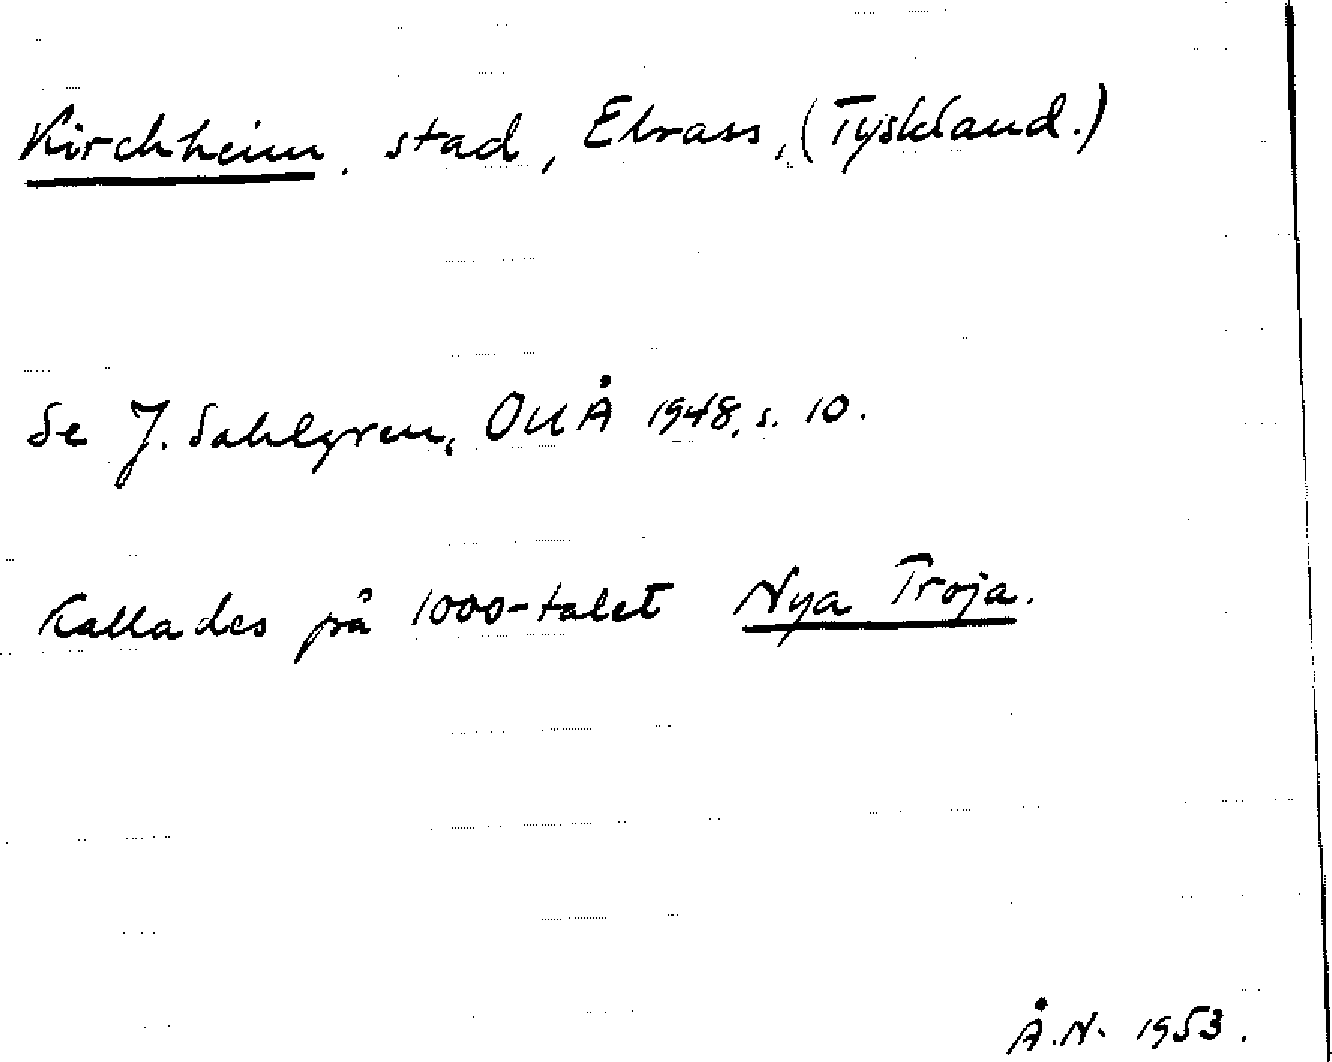 Kirchheim, stad, Elsass, (Tyskland.)
Se J. Sahlgren, OUÅ 1948, s. 10.
Kallades på 1000-talet Nya Troja.
Å.N. 1953.